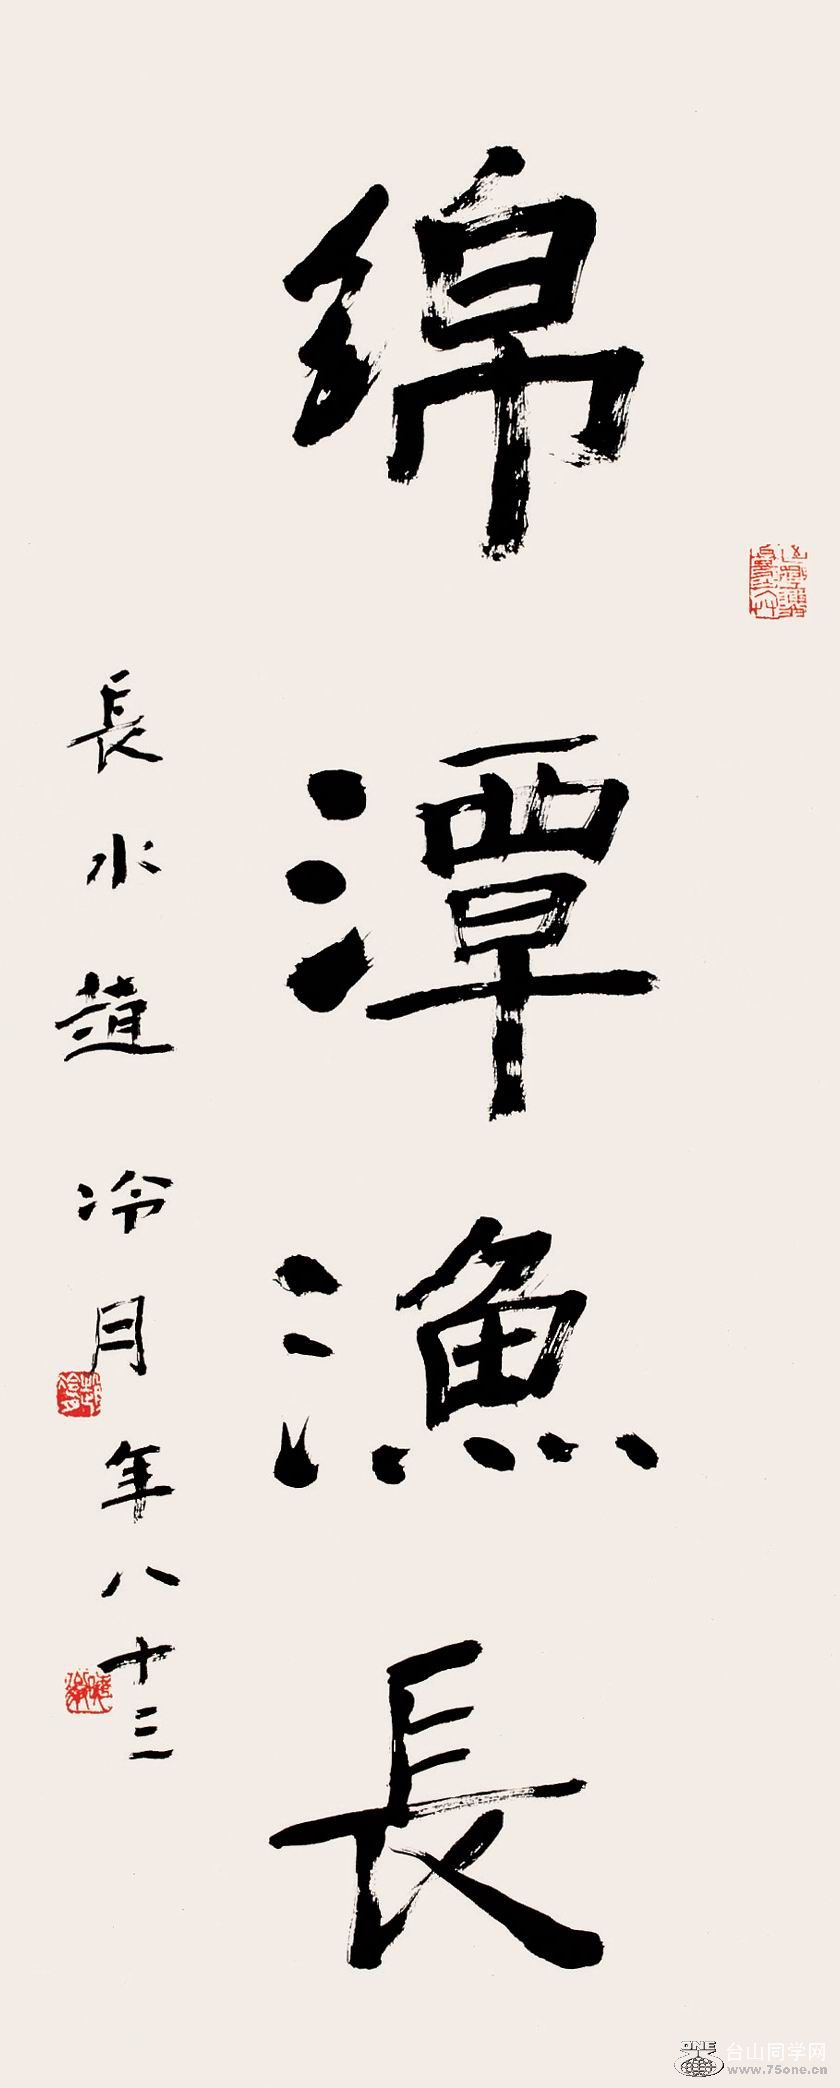 绵潭漁長
長水趙冷月年八十三
ONE 台山同学网
www.75one.cn